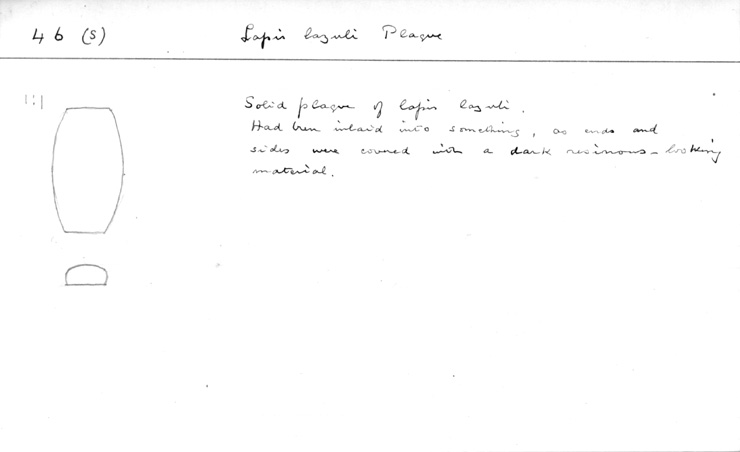 46 (s) Lapis lazuli Plaque
1:1
Solid plaque of lapis lazuli.
Had been inlaid into something, as ends and
sides were covered with a dark resinous-looking
material.